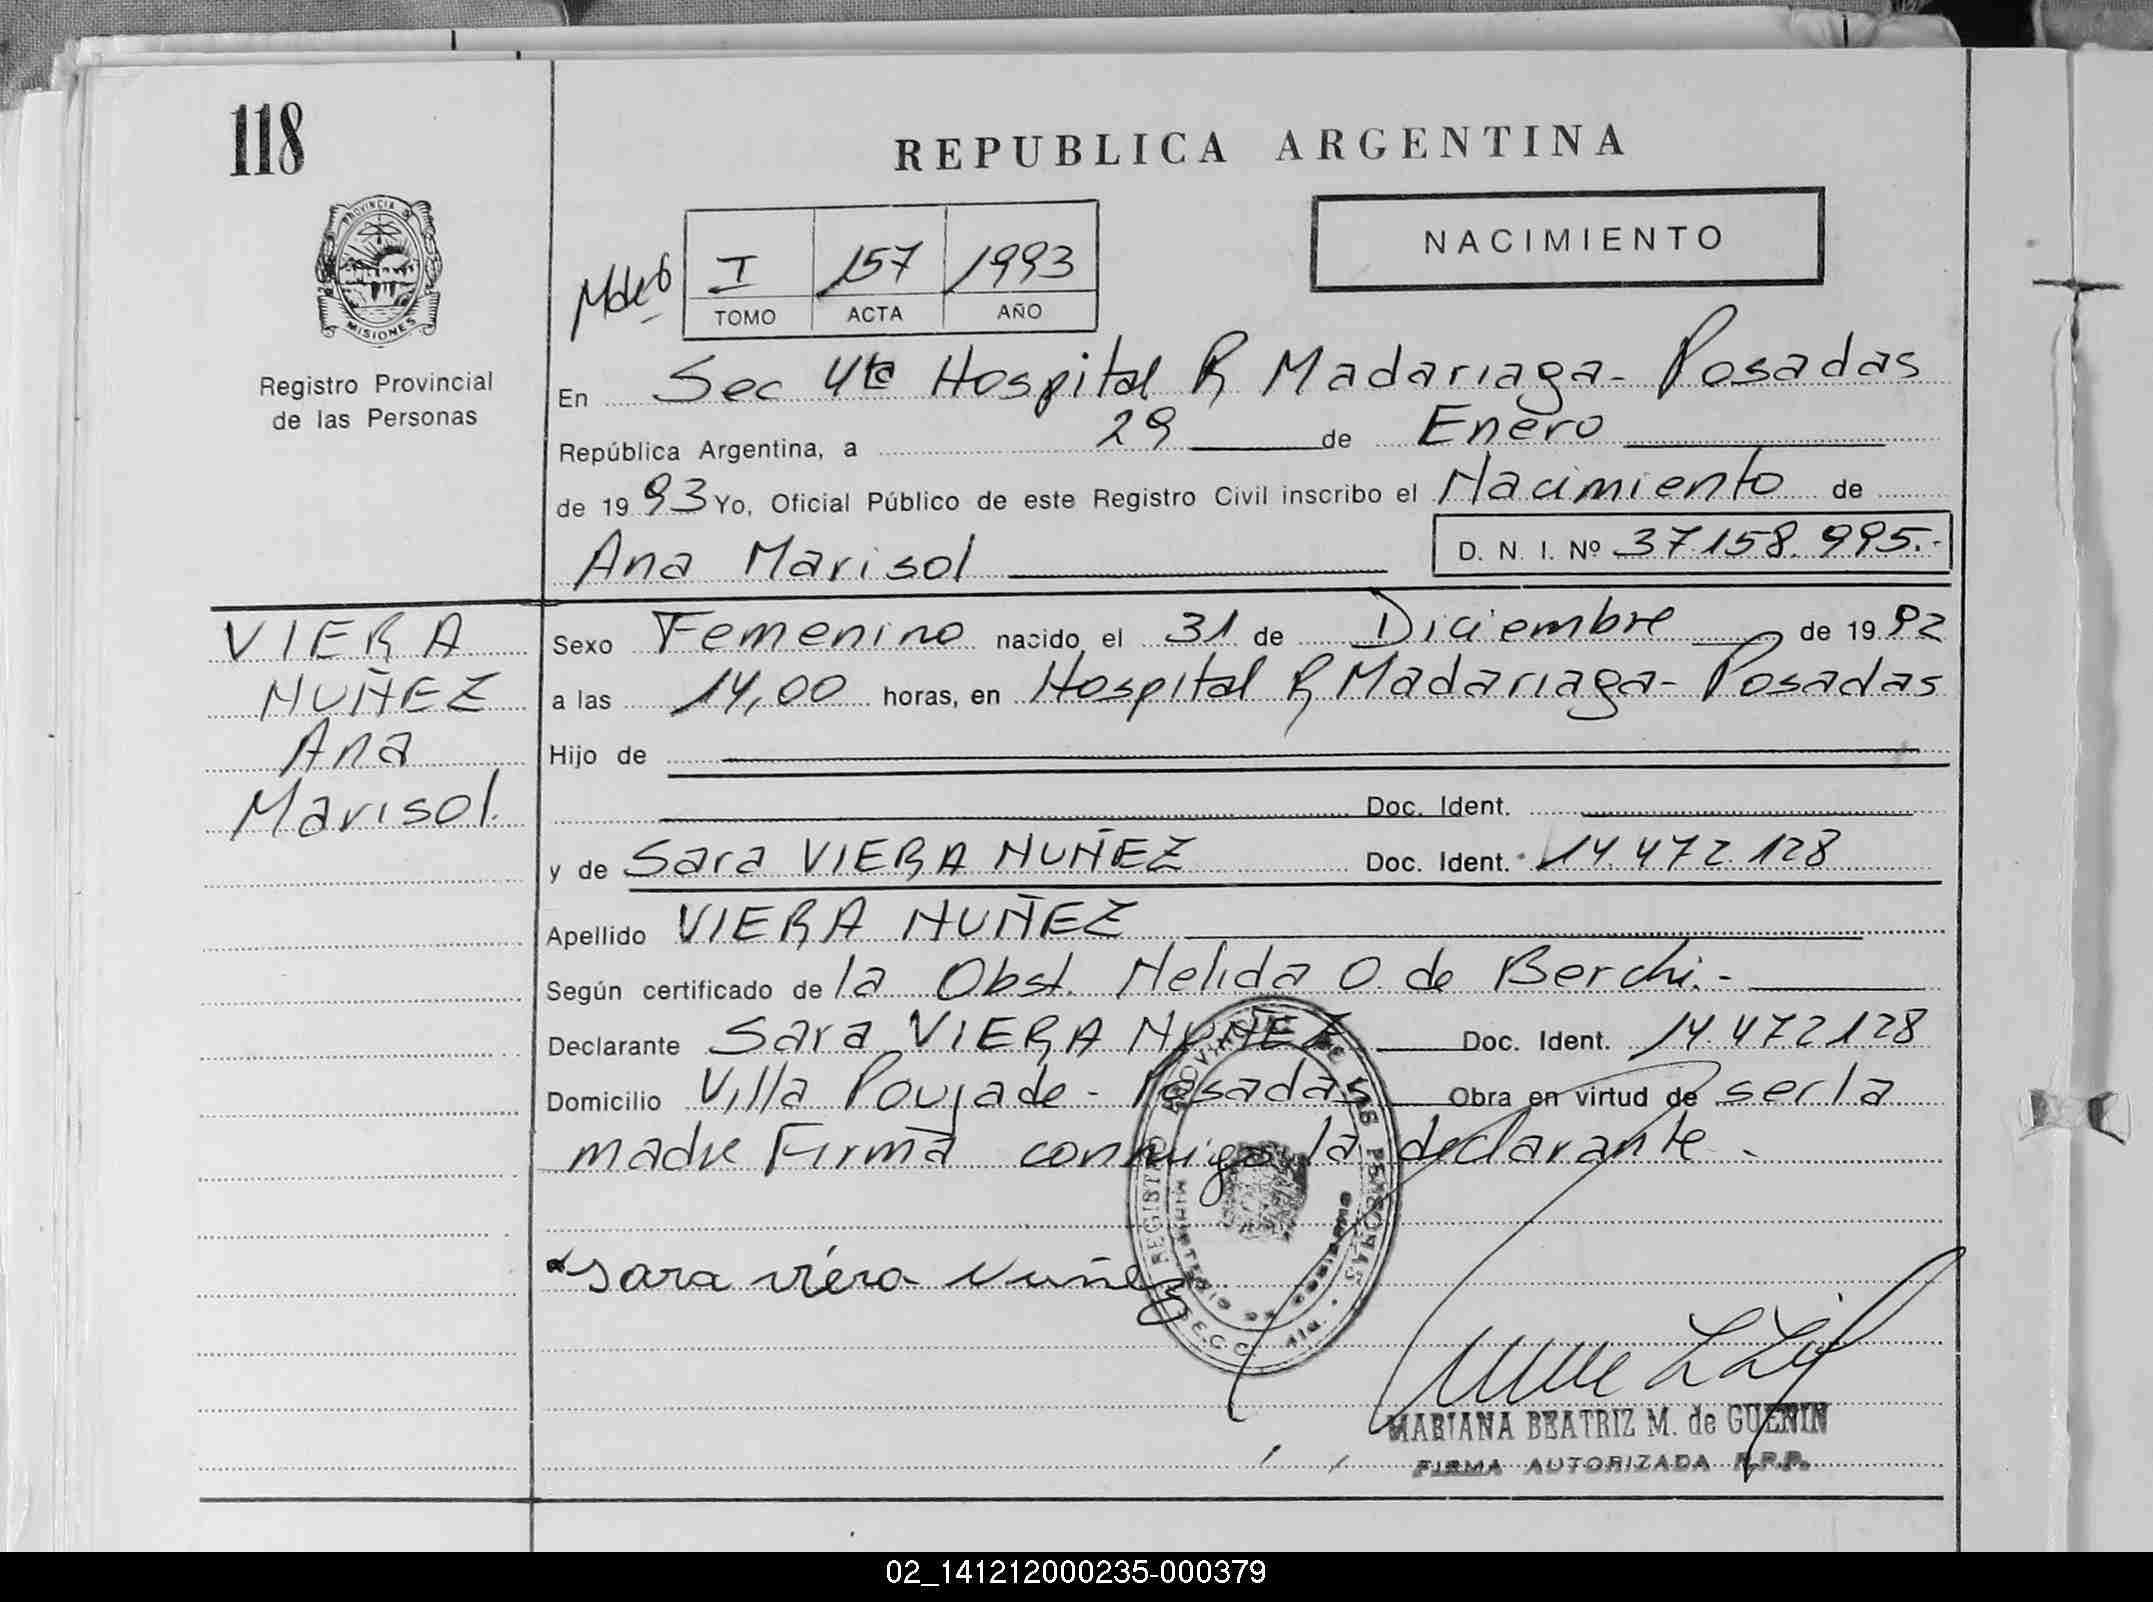 118
REPUBLICA ARGENTINA
PROVINCIA D
MISIONES
Registro Provincial
de las Personas
I 157 1993
TOMO ACTA AÑO
NACIMIENTO
En Sec 4ta Hospital R Madariaga - Posadas
República Argentina, a 29 de Enero
de 1993 Yo, Oficial Público de este Registro Civil inscribo el Nacimiento de
Ana Marisol D. N. I. Nº 37.158.995.-
VIERA
NUÑEZ
Ana
Marisol.
Sexo Femenino nacido el 31 de Diciembre de 1992
a las 14,00 horas, en Hospital R Madariaga - Posadas
Hijo de
Doc. Ident.
y de Sara VIERA NUÑEZ Doc. Ident. 14.472.128
Apellido VIERA NUÑEZ
Según certificado de la Obst. Nelida O. de Berchi.-
Declarante Sara VIERA NUÑEZ Doc. Ident. 14.472128
Domicilio Villa Poujade - Posadas Obra en virtud de ser la
madre Firma conmigo la declarante.-
REGISTRO PROVINCIAL DE LAS PERSONAS
MINISTERIO DE GOBIERNO
Sara viera Nuñez
MARIANA BEATRIZ M. de GUENIN
FIRMA AUTORIZADA R.P.P.
02_141212000235-000379